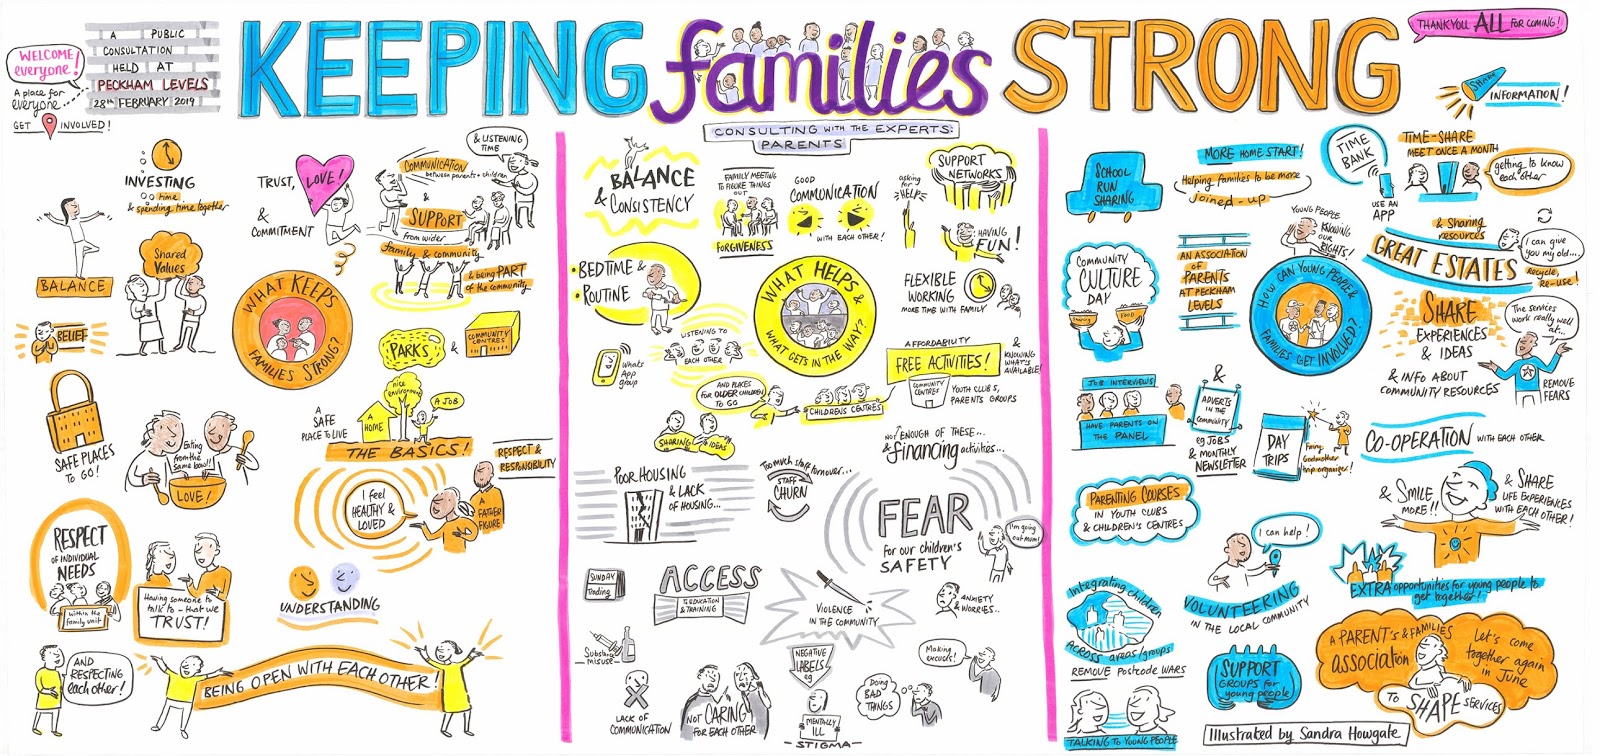 WELCOME
everyone!
A place for
everyone...
GET INVOLVED!
A PUBLIC
CONSULTATION
HELD AT
PECKHAM LEVELS
28th FEBRUARY 2019
KEEPING families STRONG
CONSULTING WITH THE EXPERTS:
PARENTS
THANKYOU ALL FOR COMING!
SHARE
INFORMATION!
INVESTING
time
& spending time together
TRUST, LOVE!
&
COMMITMENT
COMMUNICATION
between parents + children
& LISTENING
TIME
&
SUPPORT
from wider
family & community
& being PART
of the community
BALANCE
Shared
Values
BELIEF
WHAT KEEPS
FAMILIES STRONG?
PARKS
&
COMMUNITY
CENTRES
SAFE PLACES
TO GO!
Eating
from the
same bowl!
LOVE!
A
SAFE
PLACE TO LIVE
A
HOME
nice
environment
A JOB
THE BASICS!
RESPECT &
RESPONSIBILITY
I feel
HEALTHY &
LOVED
A
FATHER
FIGURE
RESPECT
OF INDIVIDUAL
NEEDS
within the
family unit
Having someone to
talk to - that we
TRUST!
UNDERSTANDING
AND
RESPECTING
each other!
BEING OPEN WITH EACH OTHER!
BALANCE
&
CONSISTENCY
FAMILY MEETING
TO FIGURE THINGS
OUT
FORGIVENESS
GOOD
COMMUNICATION
WITH EACH OTHER!
asking
for
HELP
SUPPORT
NETWORKS
HAVING
FUN!
• BEDTIME &
• ROUTINE
FLEXIBLE
WORKING
MORE TIME WITH FAMILY
WHAT HELPS &
WHAT GETS IN THE WAY?
LISTENING TO
EACH OTHER
Whats
App
group
AFFORDABILITY
FREE ACTIVITIES!
& KNOWING
WHAT'S
AVAILABLE!
AND PLACES
FOR OLDER CHILDREN
TO GO
CHILDRENS CENTRES
COMMUNITY
CENTRES
YOUTH CLUBS,
PARENTS GROUPS
SHARING IDEAS
NOT ENOUGH OF THESE...
& financing activities...
POOR HOUSING
& LACK
OF HOUSING...
Too much staff turnover...
STAFF
CHURN
FEAR
for our children's
SAFETY
I'm going
out mum!
SUNDAY
Trading
ACCESS
TO EDUCATION
& TRAINING
VIOLENCE
IN THE COMMUNITY
ANXIETY
& WORRIES..
Substance
misuse
NEGATIVE
LABELS
eg
MENTALLY
ILL
- STIGMA -
Making
excuses!
Doing
BAD
THINGS
LACK OF
COMMUNICATION
NOT CARING
FOR EACH OTHER
SCHOOL
RUN
SHARING
MORE HOME START!
Helping families to be more
joined-up
TIME
BANK
USE AN
APP
TIME-SHARE
MEET ONCE A MONTH
getting to know
each other
YOUNG PEOPLE
KNOWING
OUR
RIGHTS!
& Sharing
resources
GREAT ESTATES
I can give
you my old...
recycle,
re-use!
COMMUNITY
CULTURE
DAY
Sharing
FOOD
AN ASSOCIATION
OF
PARENTS
AT PECKHAM
LEVELS
HOW CAN YOUNG PEOPLE &
FAMILIES GET INVOLVED?
SHARE
EXPERIENCES
& IDEAS
& INFO ABOUT
COMMUNITY RESOURCES
The services
work really well
at...
REMOVE
FEARS
JOB INTERVIEWS
HAVE PARENTS ON
THE PANEL
&
ADVERTS
IN THE
COMMUNITY
eg JOBS
& MONTHLY
NEWSLETTER
DAY
TRIPS
Fairy
Godmother
trip organiser!
CO-OPERATION WITH EACH OTHER
PARENTING COURSES
IN YOUTH CLUBS
& CHILDREN'S CENTRES
& SMILE
MORE!!
& SHARE
LIFE EXPERIENCES
WITH EACH OTHER!
I can help!
VOLUNTEERING
IN THE LOCAL COMMUNITY
EXTRA opportunities for young people to
get together!
Integrating children
ACROSS areas/groups
REMOVE Postcode WARS
TALKING TO YOUNG PEOPLE
SUPPORT
GROUPS for
young people
A PARENT's & FAMILIES
association
Let's come
together again
in JUNE
TO SHAPE SERVICES
Illustrated by Sandra Howgate